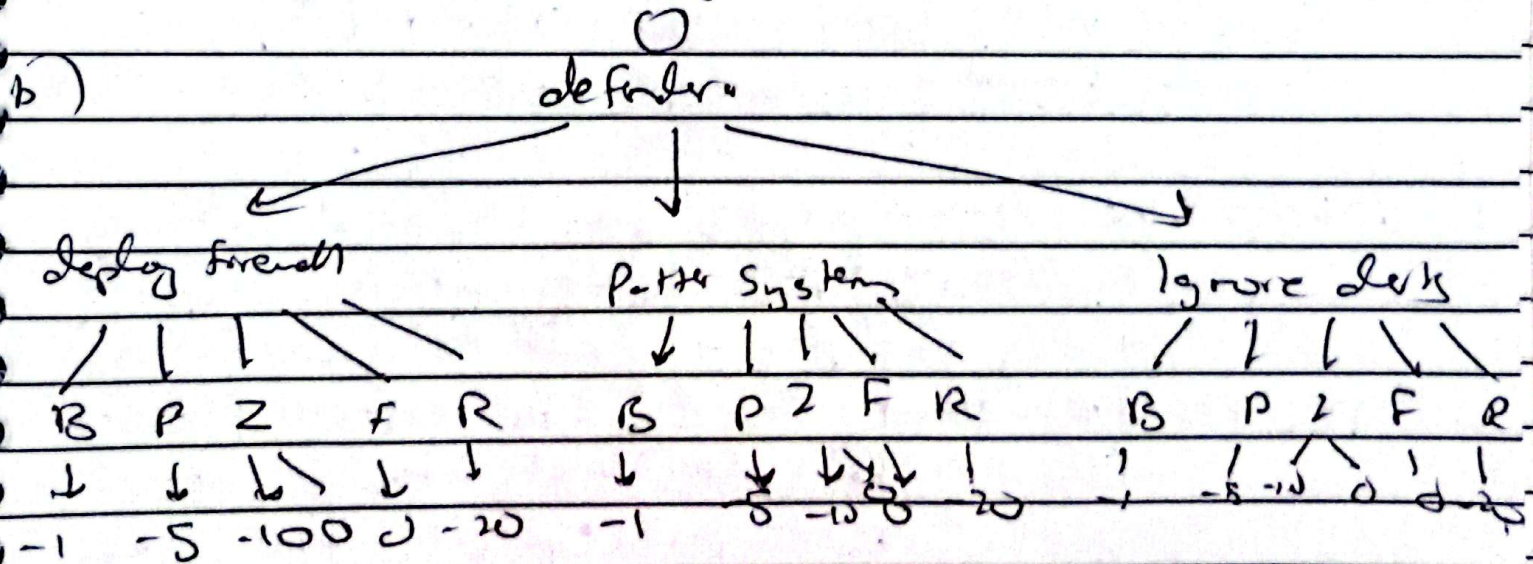 b)
defender.
deploy firewall Patch Systems Ignore alerts
B P Z F R B P Z F R B P Z F R
-1 -5 -10 0 0 -20 -1 -5 -10 0 0 -20 -1 -5 -10 0 0 -20